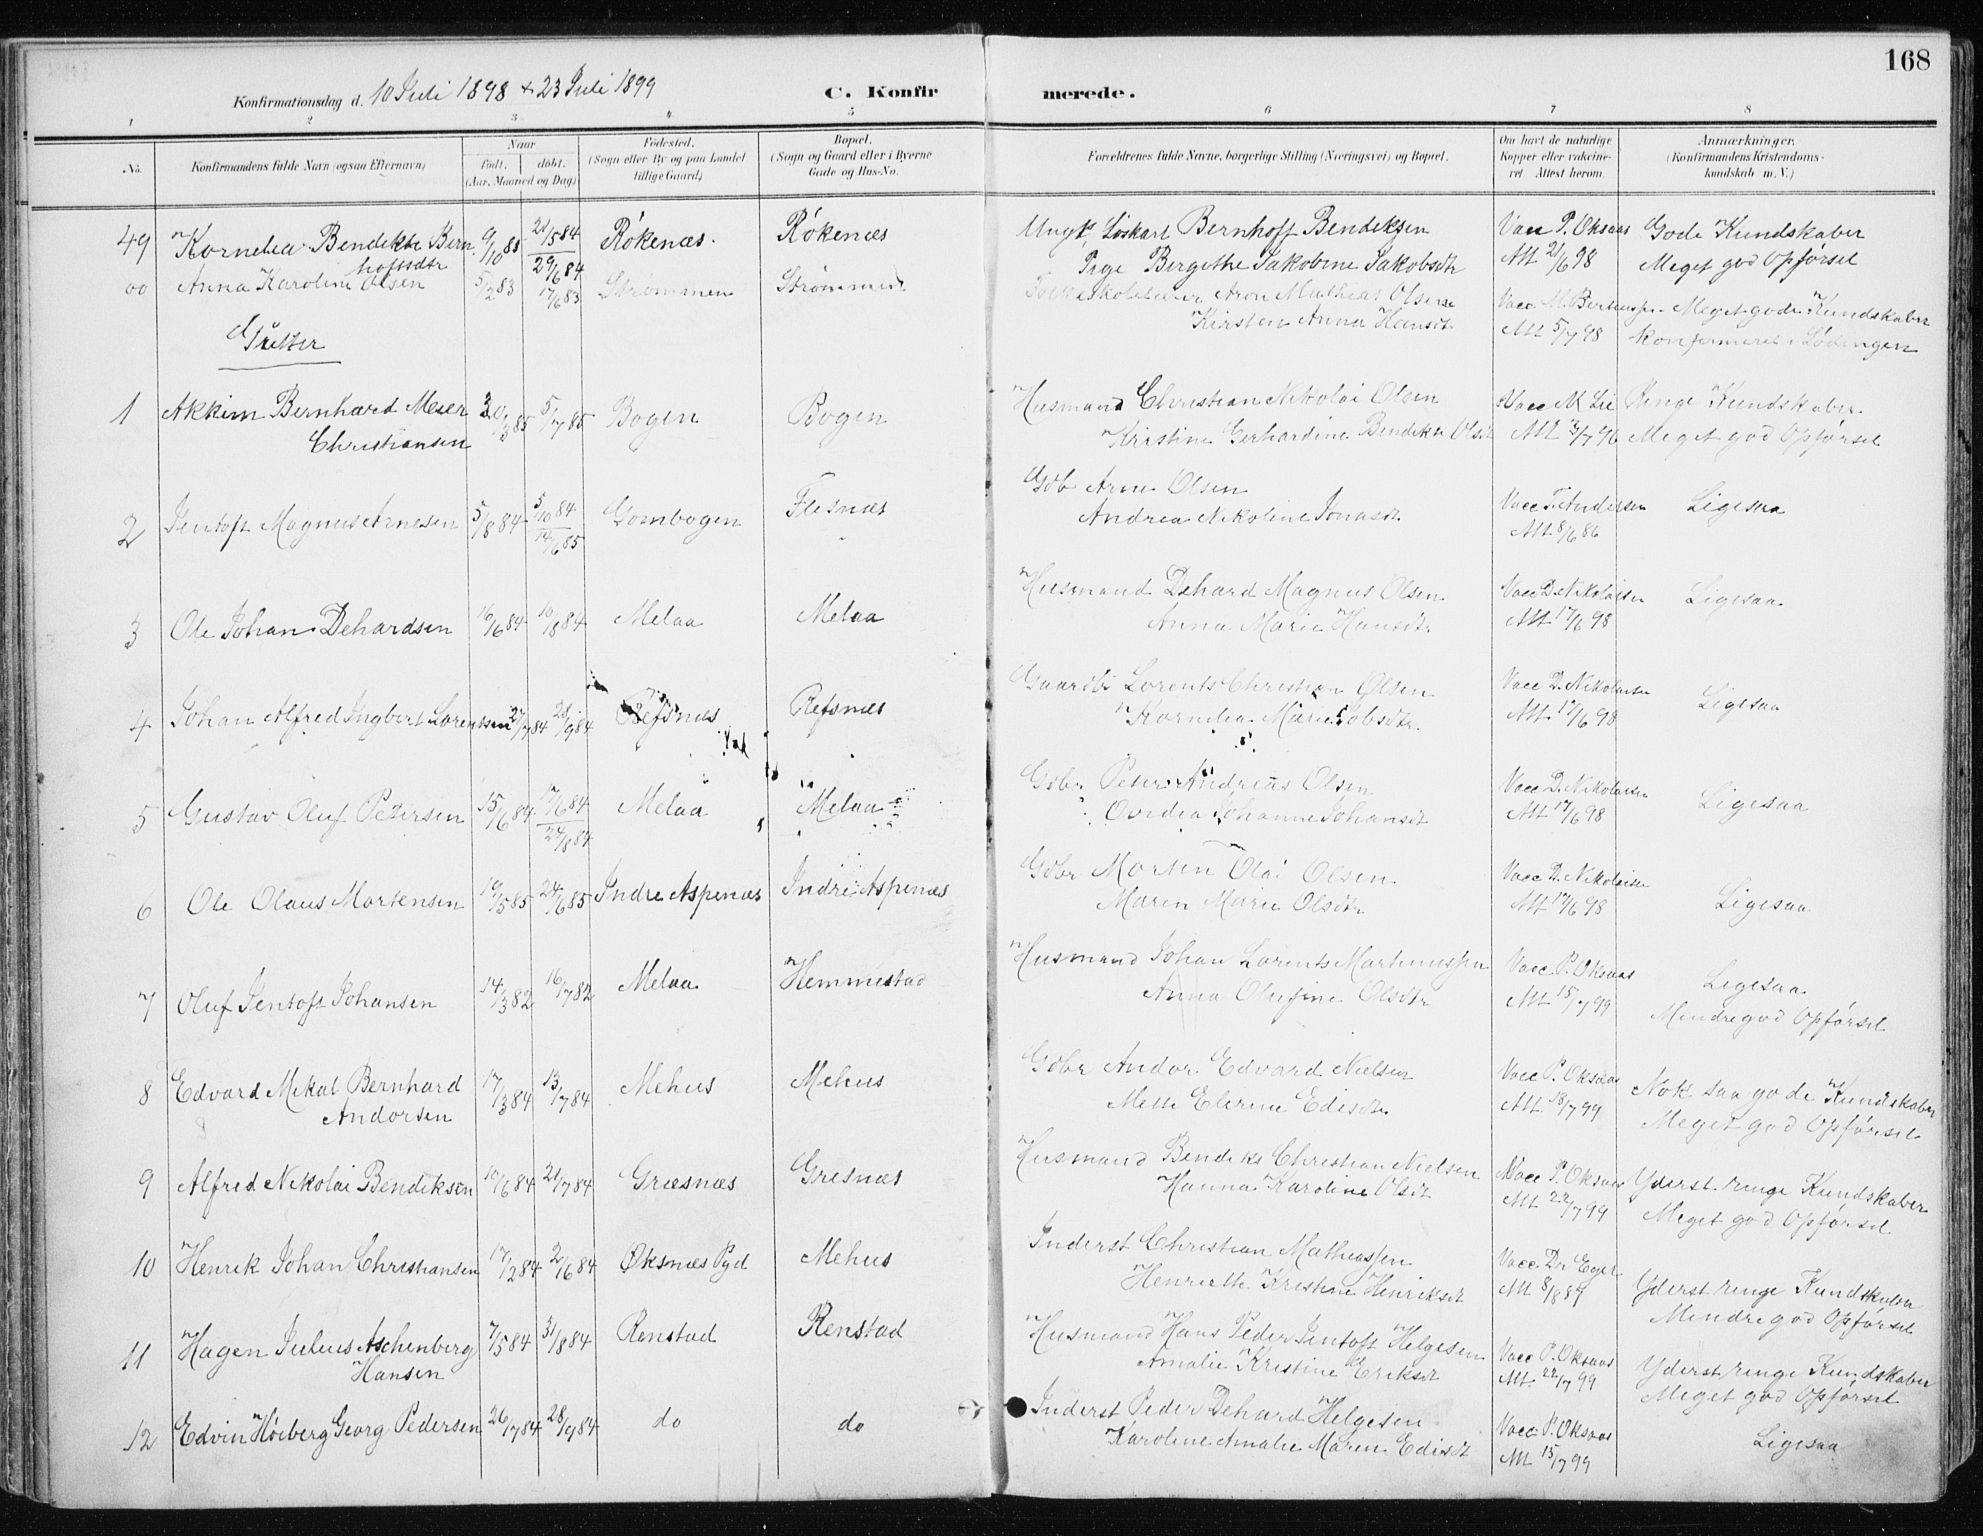 168
Konfirmationsdag d. 10 Juli 1898 + 23 Juli 1899 C. Konfirmerede.
1 2 3 4 5 6 7 8
No. Konfirmandens fulde Navn (ogsaa Efternavn) Naar født. døbt. (Aar, Maaned og Dag) Fødested. (Sogn eller By og paa Landet tillige Gaard) Bopæl. (Sogn og Gaard eller i Byerne Gade og Hus-No. Forældrenes fulde Navne, borgerlige Stilling (Næringsvei) og Bopæl. Om havt de naturlige Kopper eller vakcineret. Attest herom. Anmærkninger. (Konfirmandens Kristendomskundskab m. V.)
49 Kornelia Bendikte Bern 9/10 83 21/5 84 Rökenæs. Rökenæs Ungk. Löskarl Bernhoft Bendiksen Vacc P. Oksaas Gode Kundskaber
hoftsdtr 29/6 84 Pige Birgithe Jakobine Jakobsdtr Att 21/6 98 Meget god Opförsel
00 Anna Karoline Olsen 5/2 83 17/6 83 Strömmen Strömmen Folkeskolelærer Aron Mathias Olsen Vacc Meget gode Kundskaber
Kirsten Anna Hansdt Att 5/7 98 Konfirmeret i Lödingen
Gutter
1 Akkim Bernhard Meier 5/7 85 Bogen Bogen Husmand Christian Nikolai Olsen Vacc N Lie Ringe Kundskaber
Christiansen Kristine Gerhardine Bendikte Olsdt Att Meget god Opförsel
2 Jentoft Magnus Arnesen 5/8 84 5/10 84 Gombogen Flesnæs Gdb Arne Olsen Vacc T. Andersen Ligesaa
14/6 85 Andrea Nikoline Jonasdt. Att. 8/6 86
3 Ole Johan Dehardsen 16/6 84 10/8 84 Melaa Melaa Husmand Dehard Magnus Olsen Vacc D. Nikolaisen Ligesaa
Anna Marie Hansdtr Att 17/6 98
4 Johan Alfred Ingbert Lorentsen 27/7 84 28/9 84 Refsnæs Refsnæs Gaardbr Lorents Christian Olsen Vacc D. Nikolaisen Ligesaa
Kornelia Marie Jobsdtr. Att 17/6 98
5 Gustav Oluf Petersen 15/6 84 17/6 84 Melaa Melaa Gdbr Peter Andreas Olsen Vacc D. Nikolaisen Ligesaa
24/8 84 Ovidia Johanne Johansdt Att 17/6 98
6 Ole Olaus Mortensen 19/5 85 24/6 85 Indre Aspenæs Indre Aspenæs Gdbr Morten Olai Olsen Vacc D. Nikolaisen Ligesaa
Maren Marie Olsdtr Att 17/6 98
7 Oluf Jentoft Johansen 14/3 82 16/7 82 Melaa Hemmestad Husmand Johan Lorents Martinussen Vacc P. Oksaas Ligesaa
Anna Olufine Olsdtr Att 15/7 99 Mindre god Opförsel
8 Edvard Mikal Bernhard 17/3 84 13/7 84 Mehus Mehus Gdbr Andor Edvard Nielsen Vacc P. Oksaas Nok saa gode Kundskaber
Andorsen Mette Elerine Edisdtr Att 18/7 99 Meget god Opförsel
9 Alfred Nikolai Bendiksen 10/6 84 21/7 84 Græsnæs Gresnæs Husmand Bendiks Christian Nielsen Vacc P. Oksaas Yderst ringe Kundskaber
Hanna Karoline Olsdt Att 22/7 99 Meget god Opförsel
10 Henrik Johan Christiansen 17/2 84 20/6 84 Øksnæs Pgd Mehus Inderst Christian Mathiassen Vacc Dr Eger Yderst ringe Kundskaber
Henriette Kristine Henriksdt Att 8/8 89 Mindre god Opförsel
11 Hagen Julius Aschenberg 7/5 84 31/8 84 Renstad Renstad Husmand Hans Peder Jentoft Helgesen Vacc P. Oksaas Yderst ringe Kundskaber
Hansen Amalie Kristine Eriksdt Att. 22/7 99 Meget god Opförsel
12 Edvin Höiberg Georg Pedersen 26/7 84 28/9 84 do do Inderst Peder Dehard Helgesen Vacc P. Oksaas Ligesaa
Karoline Amalie Maren Edisdt Att 15/7 99